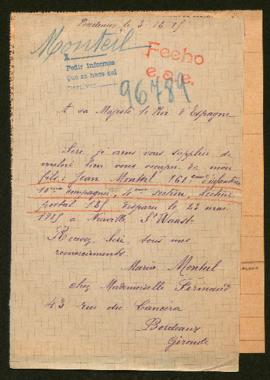 Bordeaux le 3.16.15
Monteil
Fecho
e.s.e.
Pedir informes
que se hace del
96789
A sa Majesté le Roi d'Espagne
Sire je viens vous supplier de
vouloir bien vous occuper de mon
fils : Jean Monteil 161eme d'infanterie
10eme compagnie, 4eme section, Secteur
postal 185 disparu le 22 mai
1915 à Neuville St Vaast
Recevez, Sire, tous mes
remerciements
Maria Monteil
chez Mademoiselle Fernand
43 rue du Cancéra
Bordeaux
Gironde